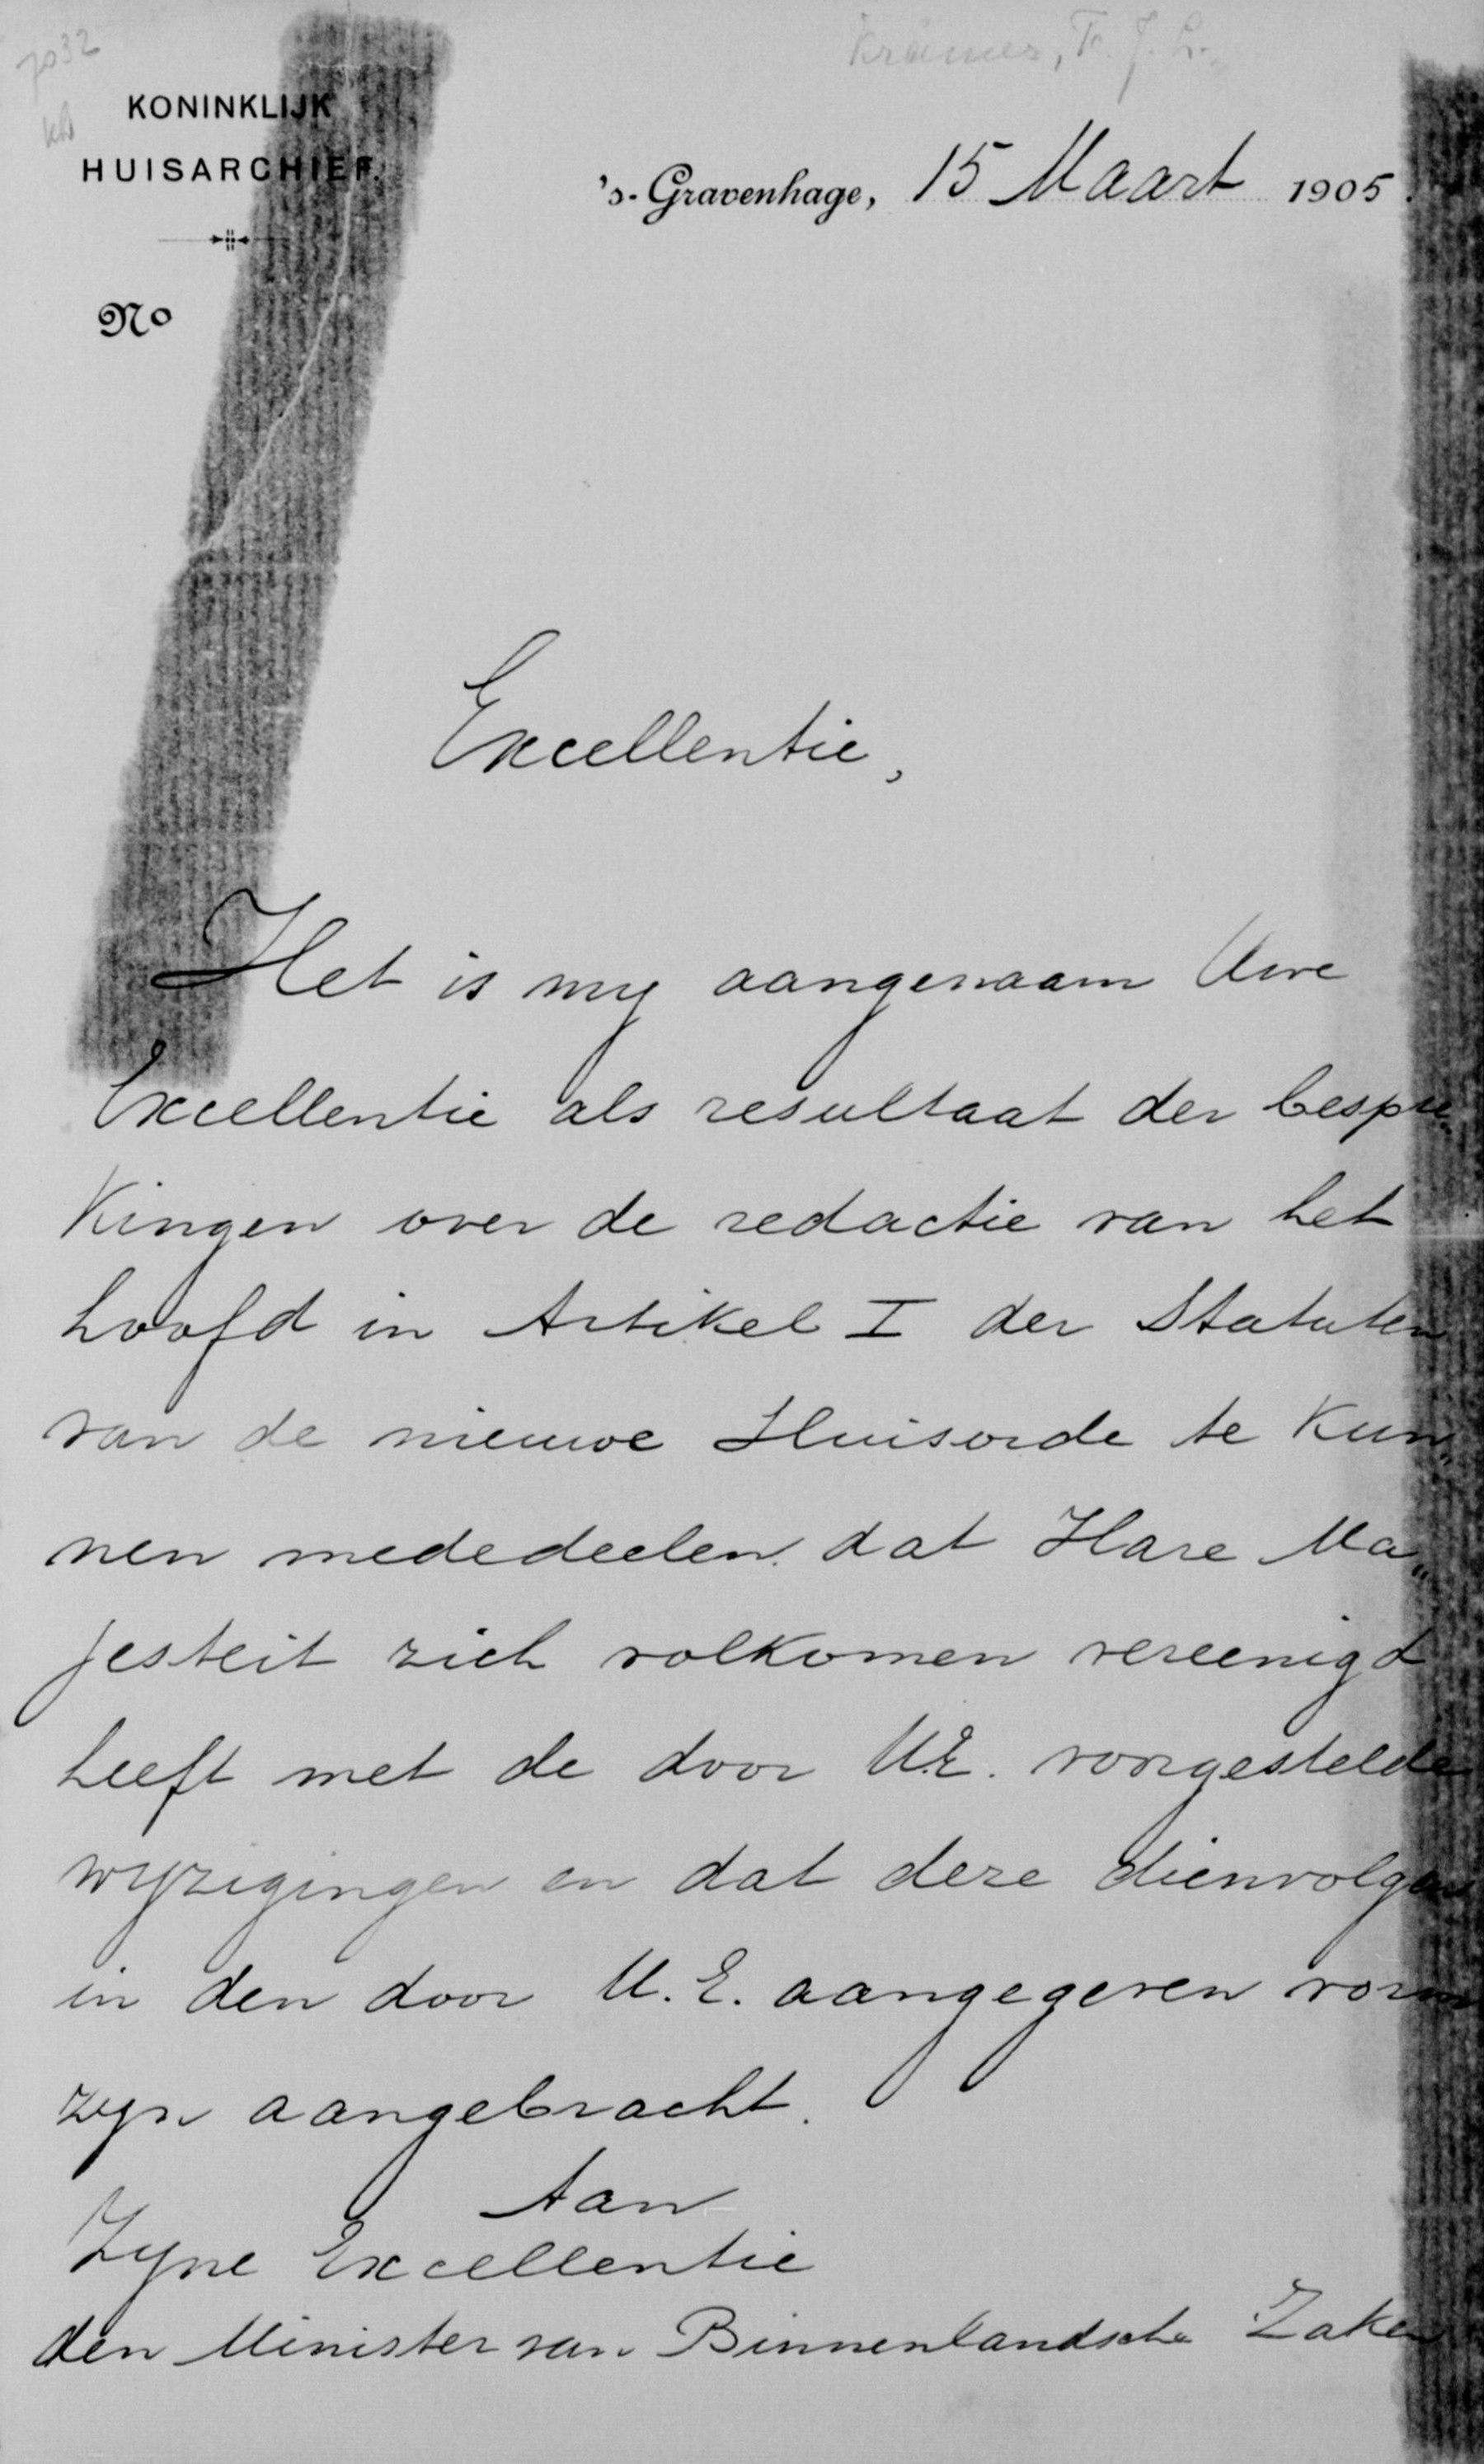 7032
Krämer, F. J. L.
KONINKLIJK
HUISARCHIEF.
's-Gravenhage, 15 Maart 1905.
No
Excellentie,
Het is my aangenaam Uwe
Excellentie als resultaat der bespre„
kingen over de redactie van het
hoofd in Artikel I der Statuten
van de nieuwe Huisorde te kun„
nen mededeelen dat Hare Ma„
jesteit zich volkomen vereenigd
heeft met de door U.E. voorgestelde
wyzigingen en dat deze dienvolgens
in den door U.E. aangegeven vorm
zyn aangebracht.
Aan
Zyne Excellentie
den Minister van Binnenlandsche Zaken